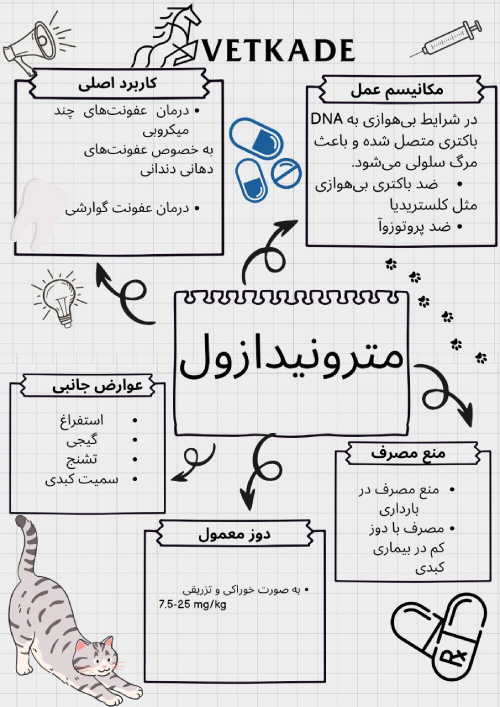 VETKADE
کاربرد اصلی
• درمان عفونت‌های چند
میکروبی
به خصوص عفونت‌های
دهانی دندانی
• درمان عفونت گوارشی
مکانیسم عمل
در شرایط بی‌هوازی به DNA
باکتری متصل شده و باعث
مرگ سلولی می‌شود.
• ضد باکتری بی‌هوازی
مثل کلستریدیا
• ضد پروتوزوآ
مترونیدازول
عوارض جانبی
• استفراغ
• گیجی
• تشنج
• سمیت کبدی
منع مصرف
• منع مصرف در
بارداری
• مصرف با دوز
کم در بیماری
کبدی
دوز معمول
• به صورت خوراکی و تزریقی
7.5-25 mg/kg
Rx